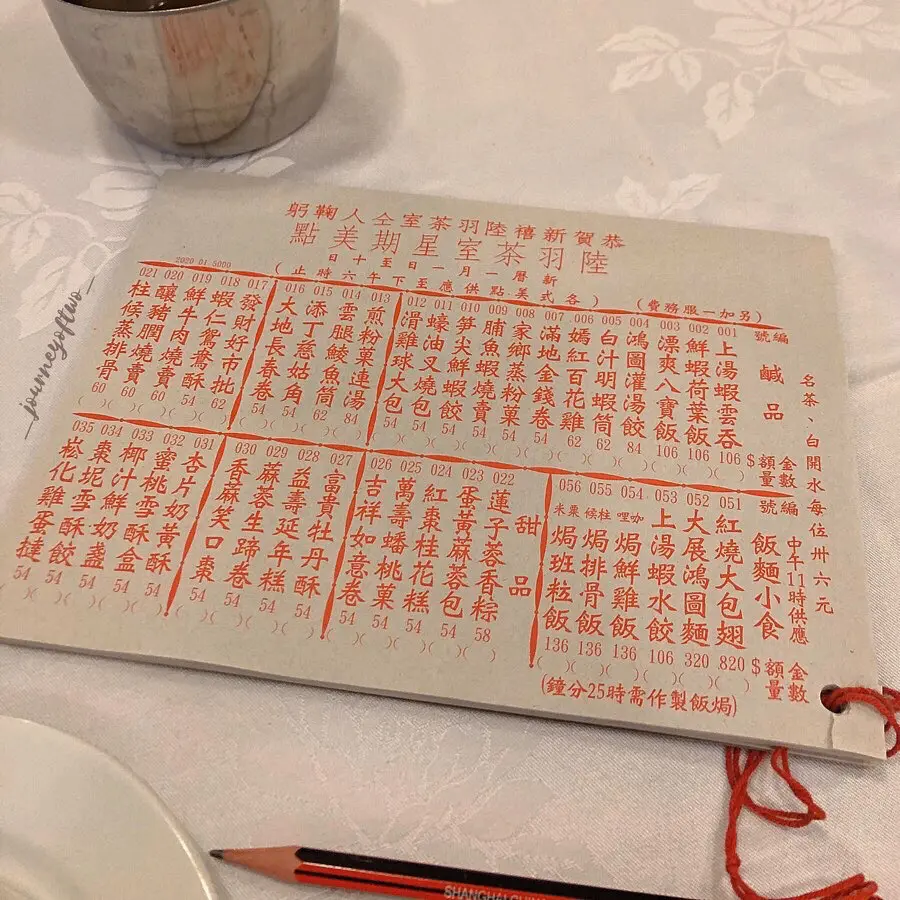 恭賀新禧陸羽茶室仝人鞠躬
陸羽茶室星期美點
新曆一月一日至十日
(各式美點供應至下午六時止)
(另加一服務費)
2020 01 5000
名茶、白開水每位卅六元
編號 鹹品 $金額 數量
001 上湯蝦雲吞 106 ( )
002 鮮蝦荷葉飯 106 ( )
003 漂爽八寶飯 106 ( )
004 鴻圖灌湯餃 84 ( )
005 白汁明蝦筒 62 ( )
006 嫣紅百花雞 62 ( )
007 滿地金錢卷 54 ( )
008 家鄉蒸粉菓 54 ( )
009 脯魚蝦燒賣 54 ( )
010 笋尖鮮蝦餃 54 ( )
011 蠔油叉燒包 54 ( )
012 滑雞球大包 54 ( )
013 煎粉菓連湯 84 ( )
014 雲腿鯪魚筒 54 ( )
015 添丁慈姑角 54 ( )
016 大地長春卷 54 ( )
017 發財好市批 62 ( )
018 蝦仁鴛鴦酥 54 ( )
019 鮮牛肉燒賣 54 ( )
020 釀豬膶燒賣 60 ( )
021 柱候蒸排骨 60 ( )
編號 飯麵小食 $金額 數量
中午11時供應
051 紅燒大包翅 820 ( )
052 大展鴻圖麵 320 ( )
053 上湯蝦水餃 106 ( )
054 咖喱焗鮮雞飯 136 ( )
055 柱候焗排骨飯 136 ( )
056 粟米焗班粒飯 136 ( )
(焗飯製作需時25分鐘)
甜品
022 蓮子蓉香粽 58 ( )
023 蛋黃麻蓉包 54 ( )
024 紅棗桂花糕 54 ( )
025 萬壽蟠桃菓 54 ( )
026 吉祥如意卷 54 ( )
027 富貴牡丹酥 54 ( )
028 益壽延年糕 54 ( )
029 蔴蓉生蹄卷 54 ( )
030 香麻笑口棗 54 ( )
031 杏片奶黃酥 54 ( )
032 蜜桃雪酥盒 54 ( )
033 椰汁鮮奶盞 54 ( )
034 棗坭雪酥餃 54 ( )
035 崧化雞蛋撻 54 ( )
_journeyoftwo_
SHANGHAI CHINA